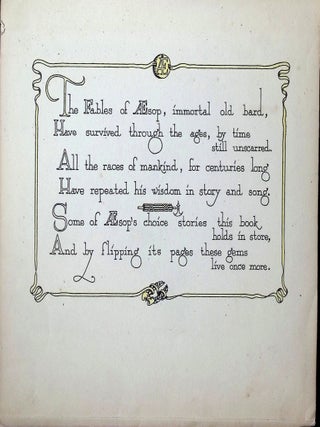 The Fables of Æsop, immortal old bard,
Have survived through the ages, by time
still unscarred.
All the races of mankind, for centuries long
Have repeated his wisdom in story and song.
Some of Æsop's choice stories this book
holds in store,
And by flipping its pages these gems
live once more.